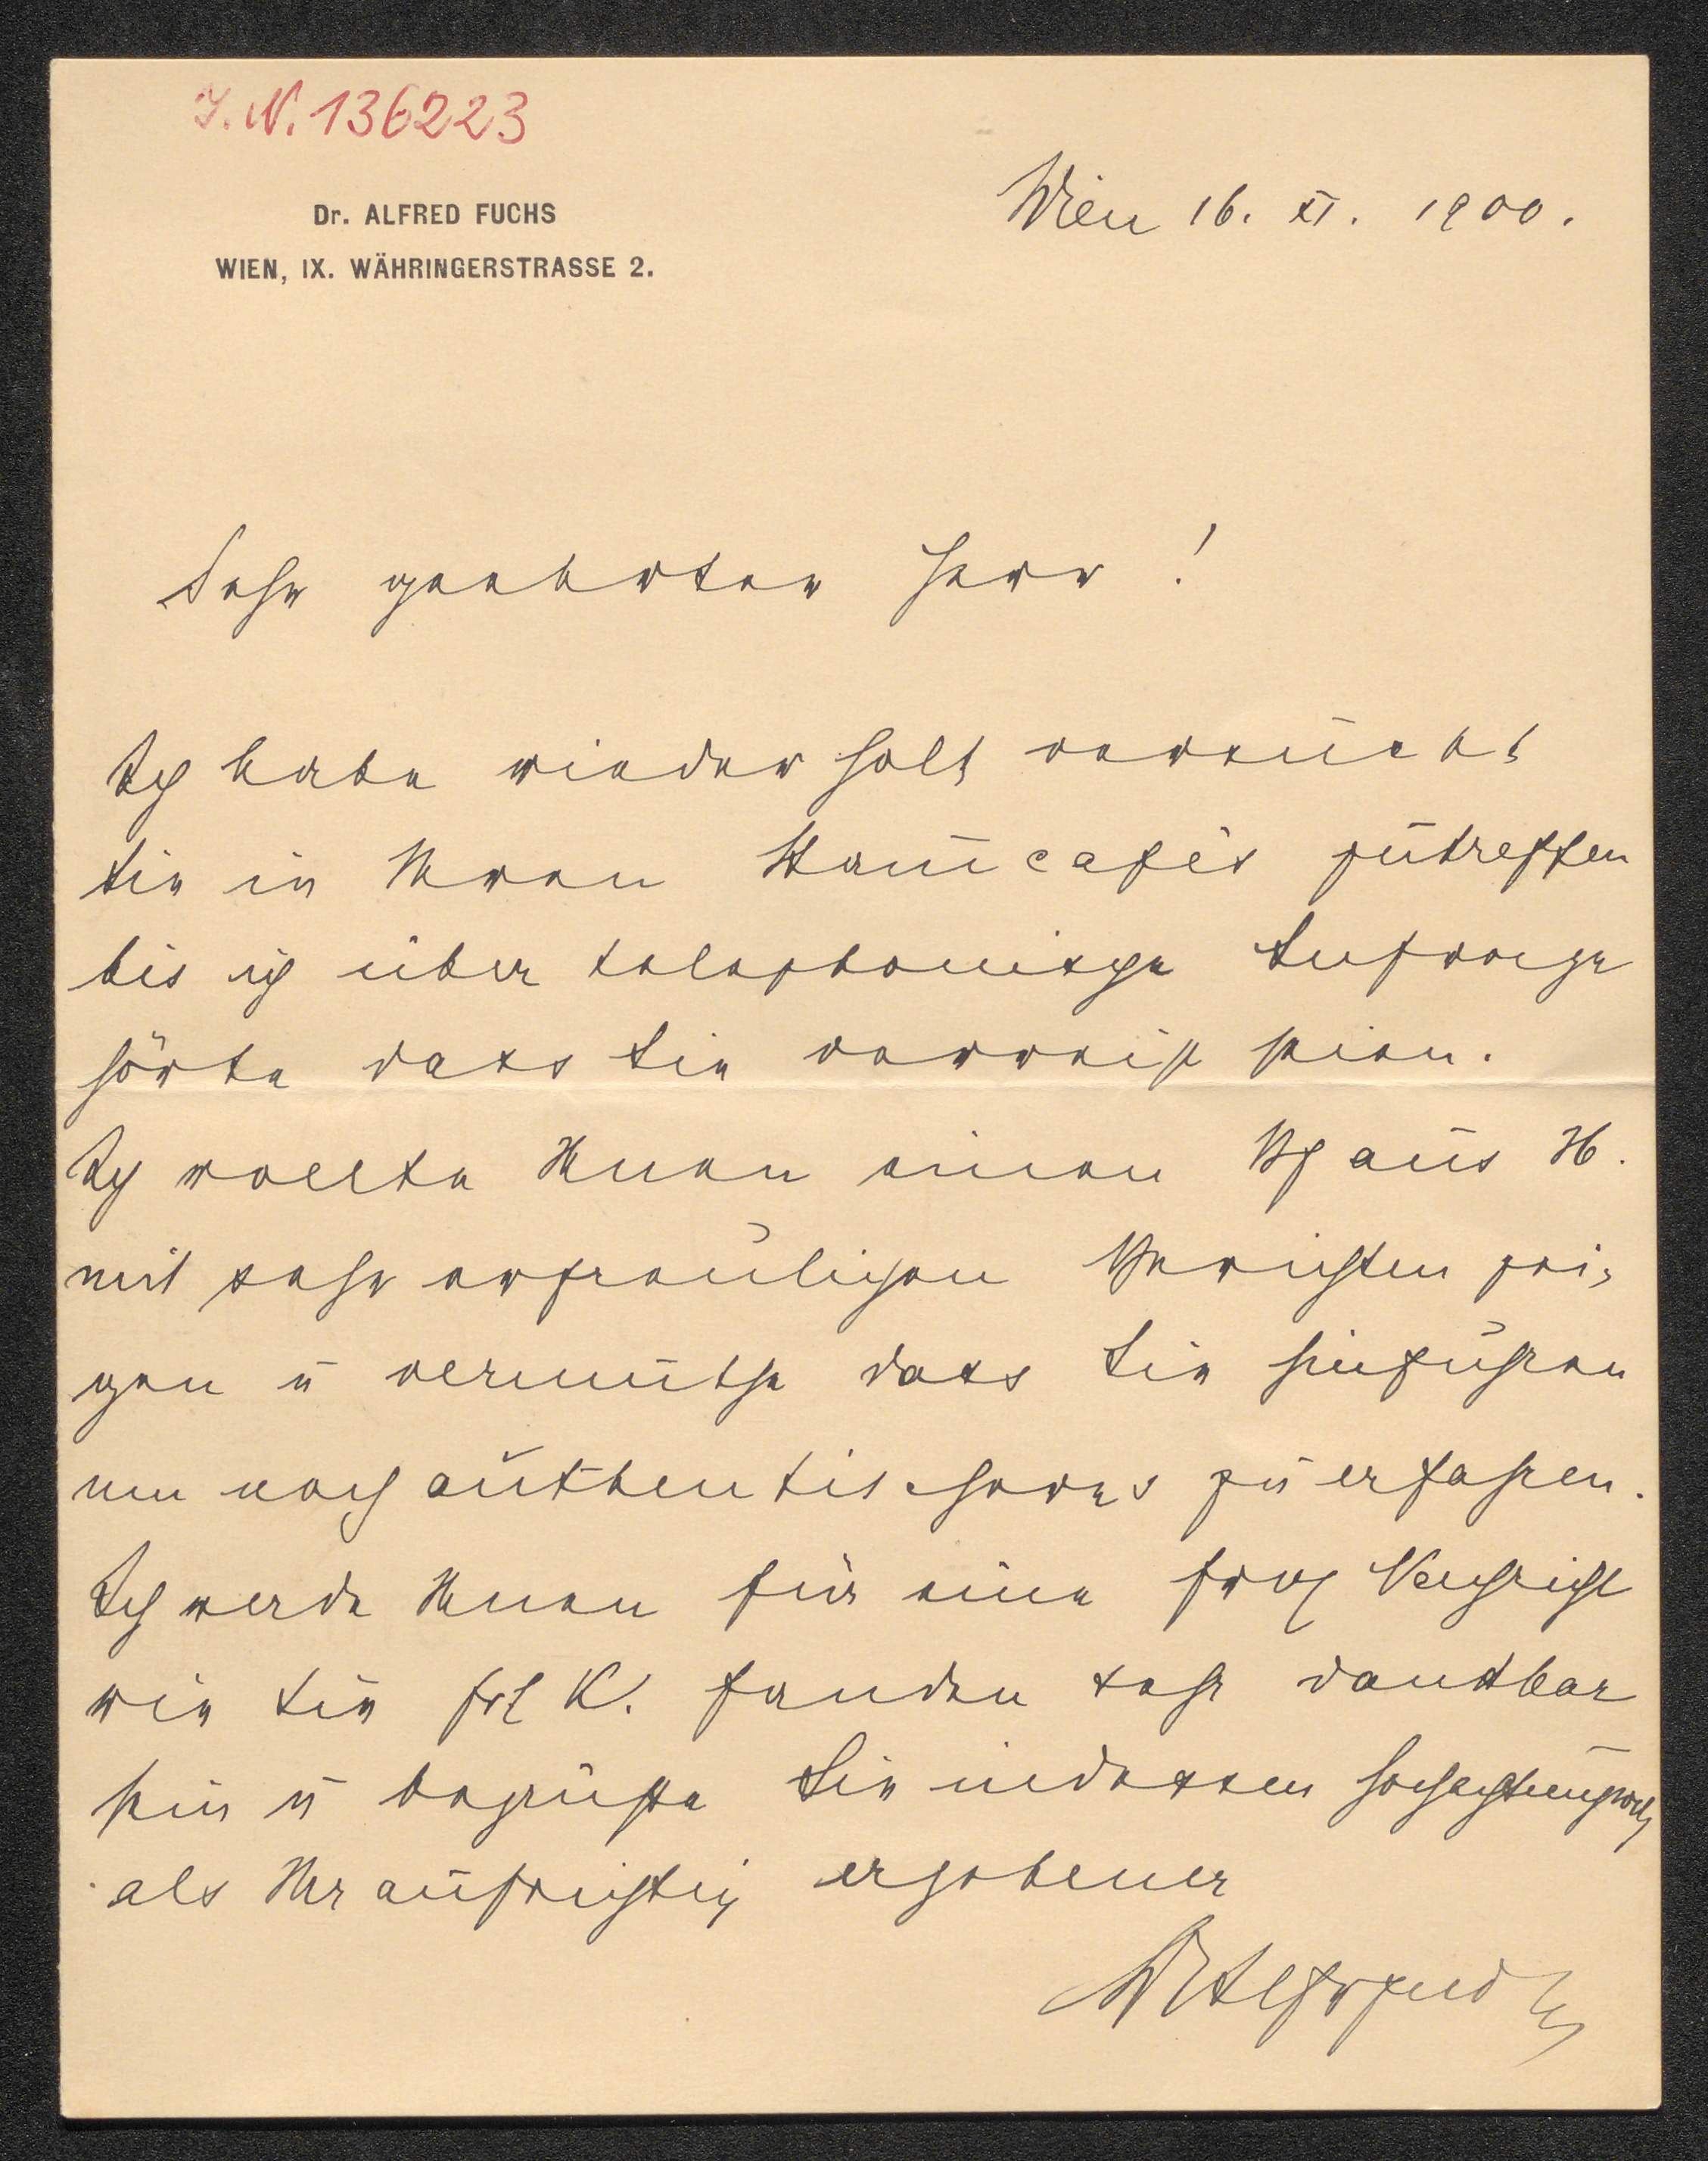 J. N. 136223
Dr. ALFRED FUCHS
WIEN, IX. WÄHRINGERSTRASSE 2.
Wien 16. XI. 1900.
Sehr geehrter Herr!
Ich habe wiederholt versucht
Sie in Ihren Stammcafés zu treffen
bis ich über telephonische Anfrage
hörte dass Sie verreist seien.
Ich wollte Ihnen einen aus H.
mit sehr erfreulichen Berichten zei-
gen u vermuthe dass Sie hinfuhren
um noch authentischeres zu erfahren.
Ich werde Ihnen für eine Nachricht
wie Sie Frl K. fanden sehr dankbar
sein u begrüße Sie indessen hochachtungsvoll
als Ihr aufrichtig ergebener